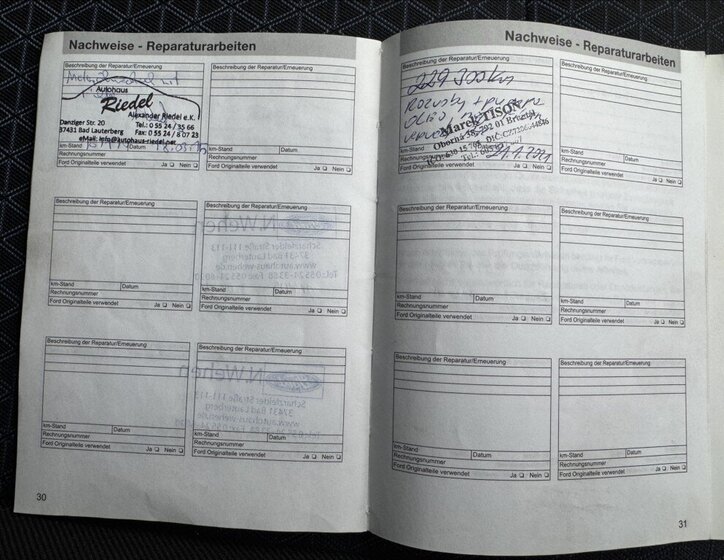 Nachweise - Reparaturarbeiten
Beschreibung der Reparatur/Erneuerung
Autohaus
Riedel
Alexander Riedel e.K.
Danziger Str. 20
Tel.: 0 55 24 / 35 66
37431 Bad Lauterberg
Fax: 0 55 24 / 8 07 23
eMail: info@autohaus-riedel.net
km-Stand
Datum
Rechnungsnummer
Ford Originalteile verwendet
Ja
Nein
Beschreibung der Reparatur/Erneuerung
km-Stand
Datum
Rechnungsnummer
Ford Originalteile verwendet
Ja
Nein
Beschreibung der Reparatur/Erneuerung
km-Stand
Datum
Rechnungsnummer
Ford Originalteile verwendet
Ja
Nein
Beschreibung der Reparatur/Erneuerung
N Wehen
Scharzfelder Straße 111-113
37431 Bad Lauterberg
km-Stand
Datum
Rechnungsnummer
Ford Originalteile verwendet
Ja
Nein
Beschreibung der Reparatur/Erneuerung
km-Stand
Datum
Rechnungsnummer
Ford Originalteile verwendet
Ja
Nein
Beschreibung der Reparatur/Erneuerung
N Wehen
Scharzfelder Straße 111-113
37431 Bad Lauterberg
km-Stand
Datum
Rechnungsnummer
Ford Originalteile verwendet
Ja
Nein
30
Nachweise - Reparaturarbeiten
Beschreibung der Reparatur/Erneuerung
Marek TISOŇ
km-Stand
Rechnungsnummer
Ford Originalteile verwendet
Ja
Nein
Beschreibung der Reparatur/Erneuerung
km-Stand
Datum
Rechnungsnummer
Ford Originalteile verwendet
Ja
Nein
Beschreibung der Reparatur/Erneuerung
km-Stand
Datum
Rechnungsnummer
Ford Originalteile verwendet
Ja
Nein
Beschreibung der Reparatur/Erneuerung
km-Stand
Datum
Rechnungsnummer
Ford Originalteile verwendet
Ja
Nein
Beschreibung der Reparatur/Erneuerung
km-Stand
Datum
Rechnungsnummer
Ford Originalteile verwendet
Ja
Nein
Beschreibung der Reparatur/Erneuerung
km-Stand
Datum
Rechnungsnummer
Ford Originalteile verwendet
Ja
Nein
31